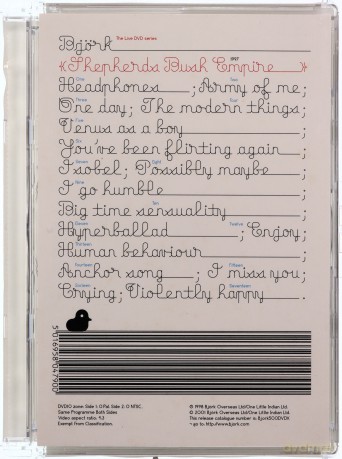 Björk The Live DVD series
Shepherds Bush Empire 1997
One Two
Headphones; Army of me;
Three Four
One day; The modern things;
Five
Venus as a boy;
Six
You've been flirting again;
Seven Eight
Isobel; Possibly maybe;
Nine
I go humble;
Ten
Big time sensuality;
Eleven Twelve
Hyperballad; Enjoy;
Thirteen
Human behaviour;
Fourteen Fifteen
Anchor song; I miss you;
Sixteen Seventeen
Crying; Violently happy.
5016958047900
DVD10 zone: Side 1: 0 Pal Side 2: 0 NTSC.
Same Programme Both Sides
Video aspect ratio: 4:3
Exempt From Classification.
© 1998 Björk Overseas Ltd/One Little Indian Ltd.
℗ 2001 Björk Overseas Ltd/One Little Indian Ltd.
This release catalogue number is: Bjork500DVDX
go to: http://www.bjork.com